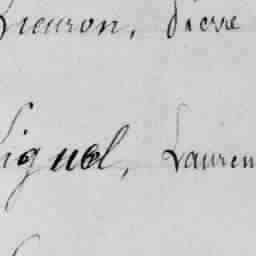 Lieuron, Pierre
Siguel, Lauren